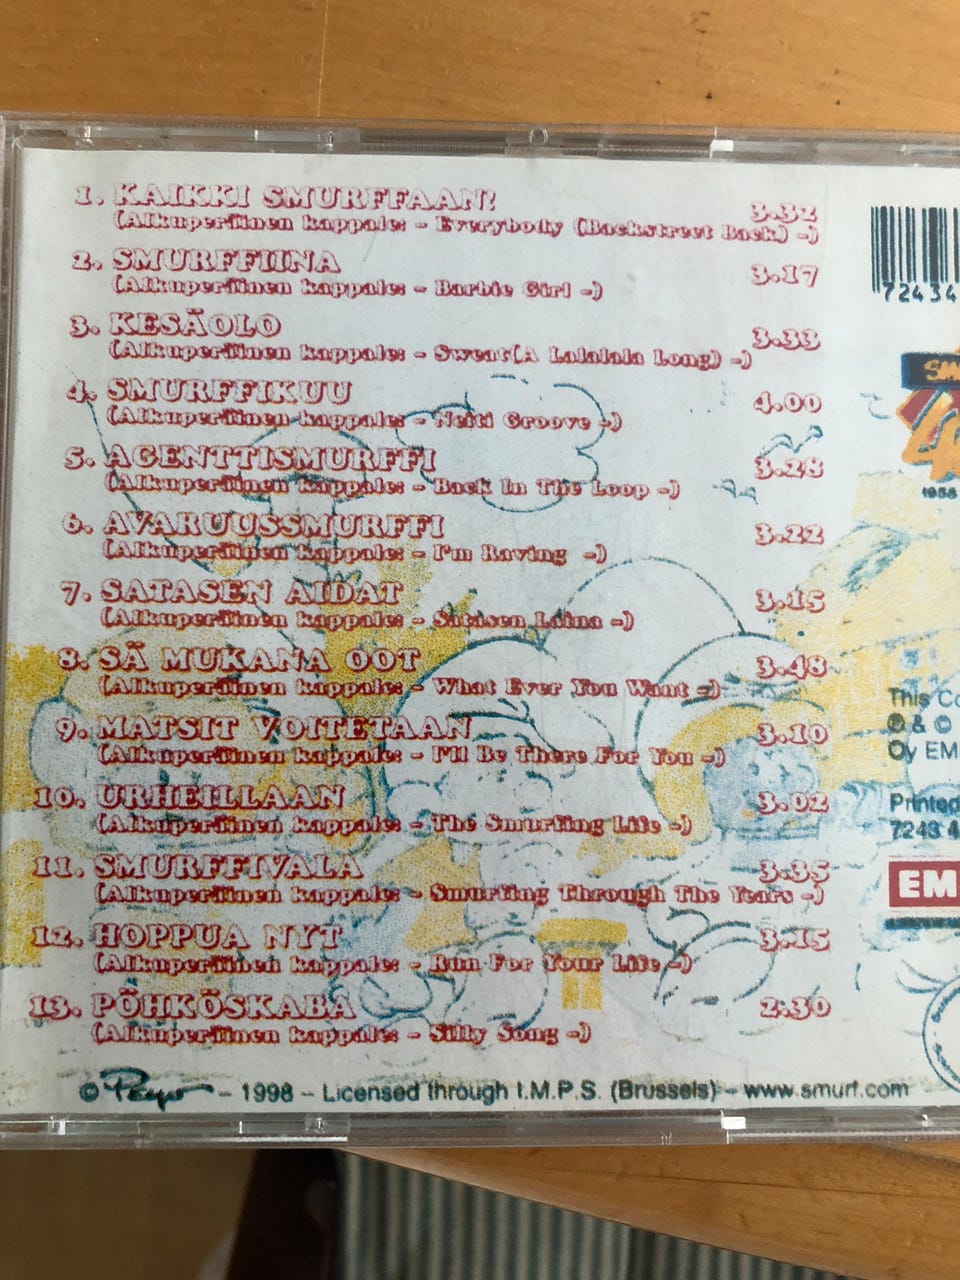 1. KAIKKI SMURFFAAN! 3.32
(Alkuperäinen kappale: - Everybody (Backstreet Back) -)
2. SMURFFIINA 3.17
(Alkuperäinen kappale: - Barbie Girl -)
3. KESÄOLO 3.33
(Alkuperäinen kappale: - Sweat(A Lalalala Long) -)
4. SMURFFIKUU 4.00
(Alkuperäinen kappale: - Neiti Groove -)
5. AGENTTISMURFFI 3.28
(Alkuperäinen kappale: - Back In The Loop -)
6. AVARUUSSMURFFI 3.22
(Alkuperäinen kappale: - I'm Raving -)
7. SATASEN AIDAT 3.15
(Alkuperäinen kappale: - Satasen Laina -)
8. SÄ MUKANA OOT 3.48
(Alkuperäinen kappale: - What Ever You Want -)
9. MATSIT VOITETAAN 3.10
(Alkuperäinen kappale: - I'll Be There For You -)
10. URHEILLAAN 3.02
(Alkuperäinen kappale: - The Smurfing Life -)
11. SMURFFIVALA 3.35
(Alkuperäinen kappale: - Smurfing Through The Years -)
12. HOPPUA NYT 3.15
(Alkuperäinen kappale: - Run For Your Life -)
13. PÖHKÖSKABA 2.30
(Alkuperäinen kappale: - Silly Song -)
© Peyo - 1998 - Licensed through I.M.P.S. (Brussels) - www.smurf.com
72434
1958
This Co
℗ & ©
Oy EM
Printed
7243 4
EM